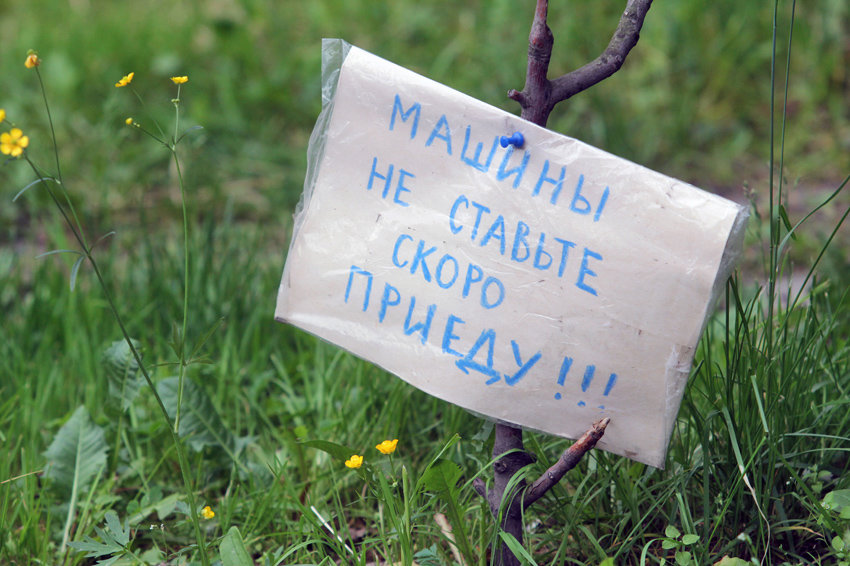 МАШИНЫ
НЕ СТАВЬТЕ
СКОРО
ПРИЕДУ!!!